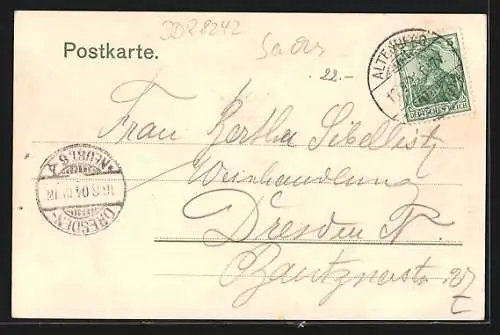 JD28242
Postkarte.
22.-
ALTENBURG
5
DEUTSCHES REICH
Frau Bertha Sibellist
Weinhandlung
Dresden N.
Bautznerstr. 27
I
DRESDEN-
16.8.04
NEUST. 6